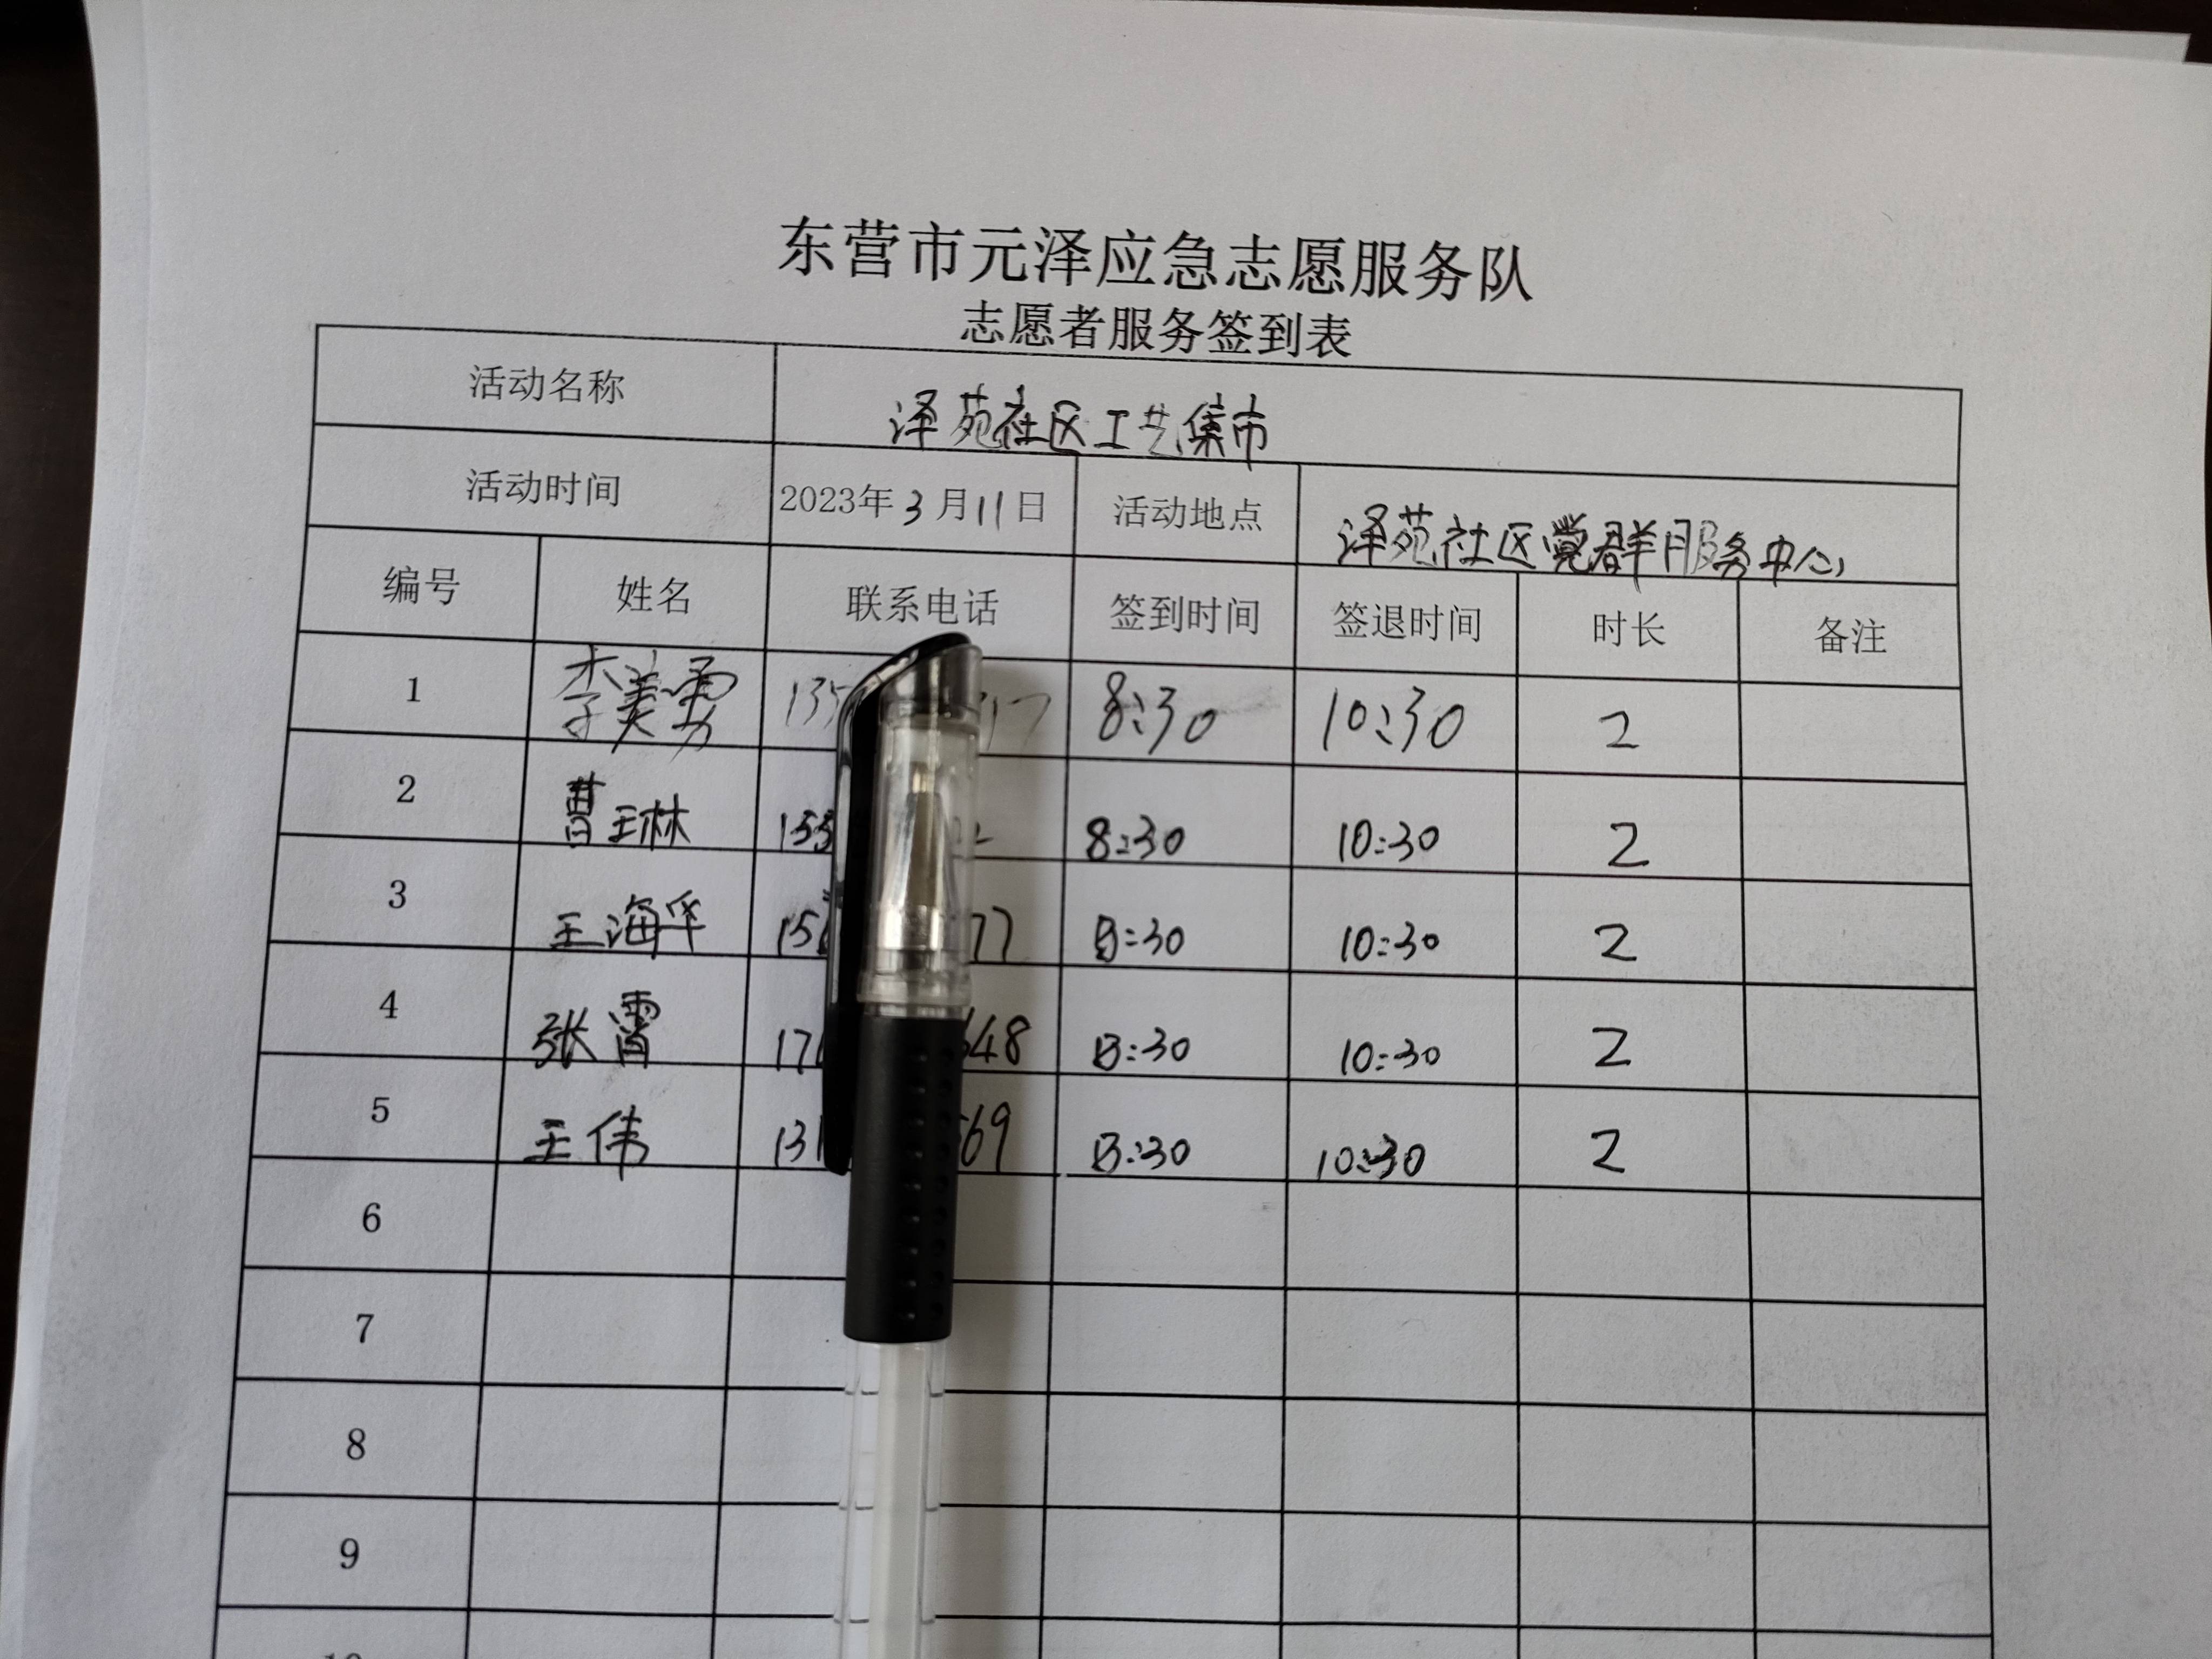 东营市元泽应急志愿服务队
志愿者服务签到表
活动名称 泽苑社区工艺集市
活动时间 2023年3月11日 活动地点 泽苑社区党群服务中心
编号 姓名 联系电话 签到时间 签退时间 时长 备注
1 李美勇 135 17 8:30 10:30 2
2 曹玉林 153 8:30 10:30 2
3 王海华 15 77 8:30 10:30 2
4 张霄 17 648 8:30 10:30 2
5 王伟 131 569 8:30 10:30 2
6
7
8
9